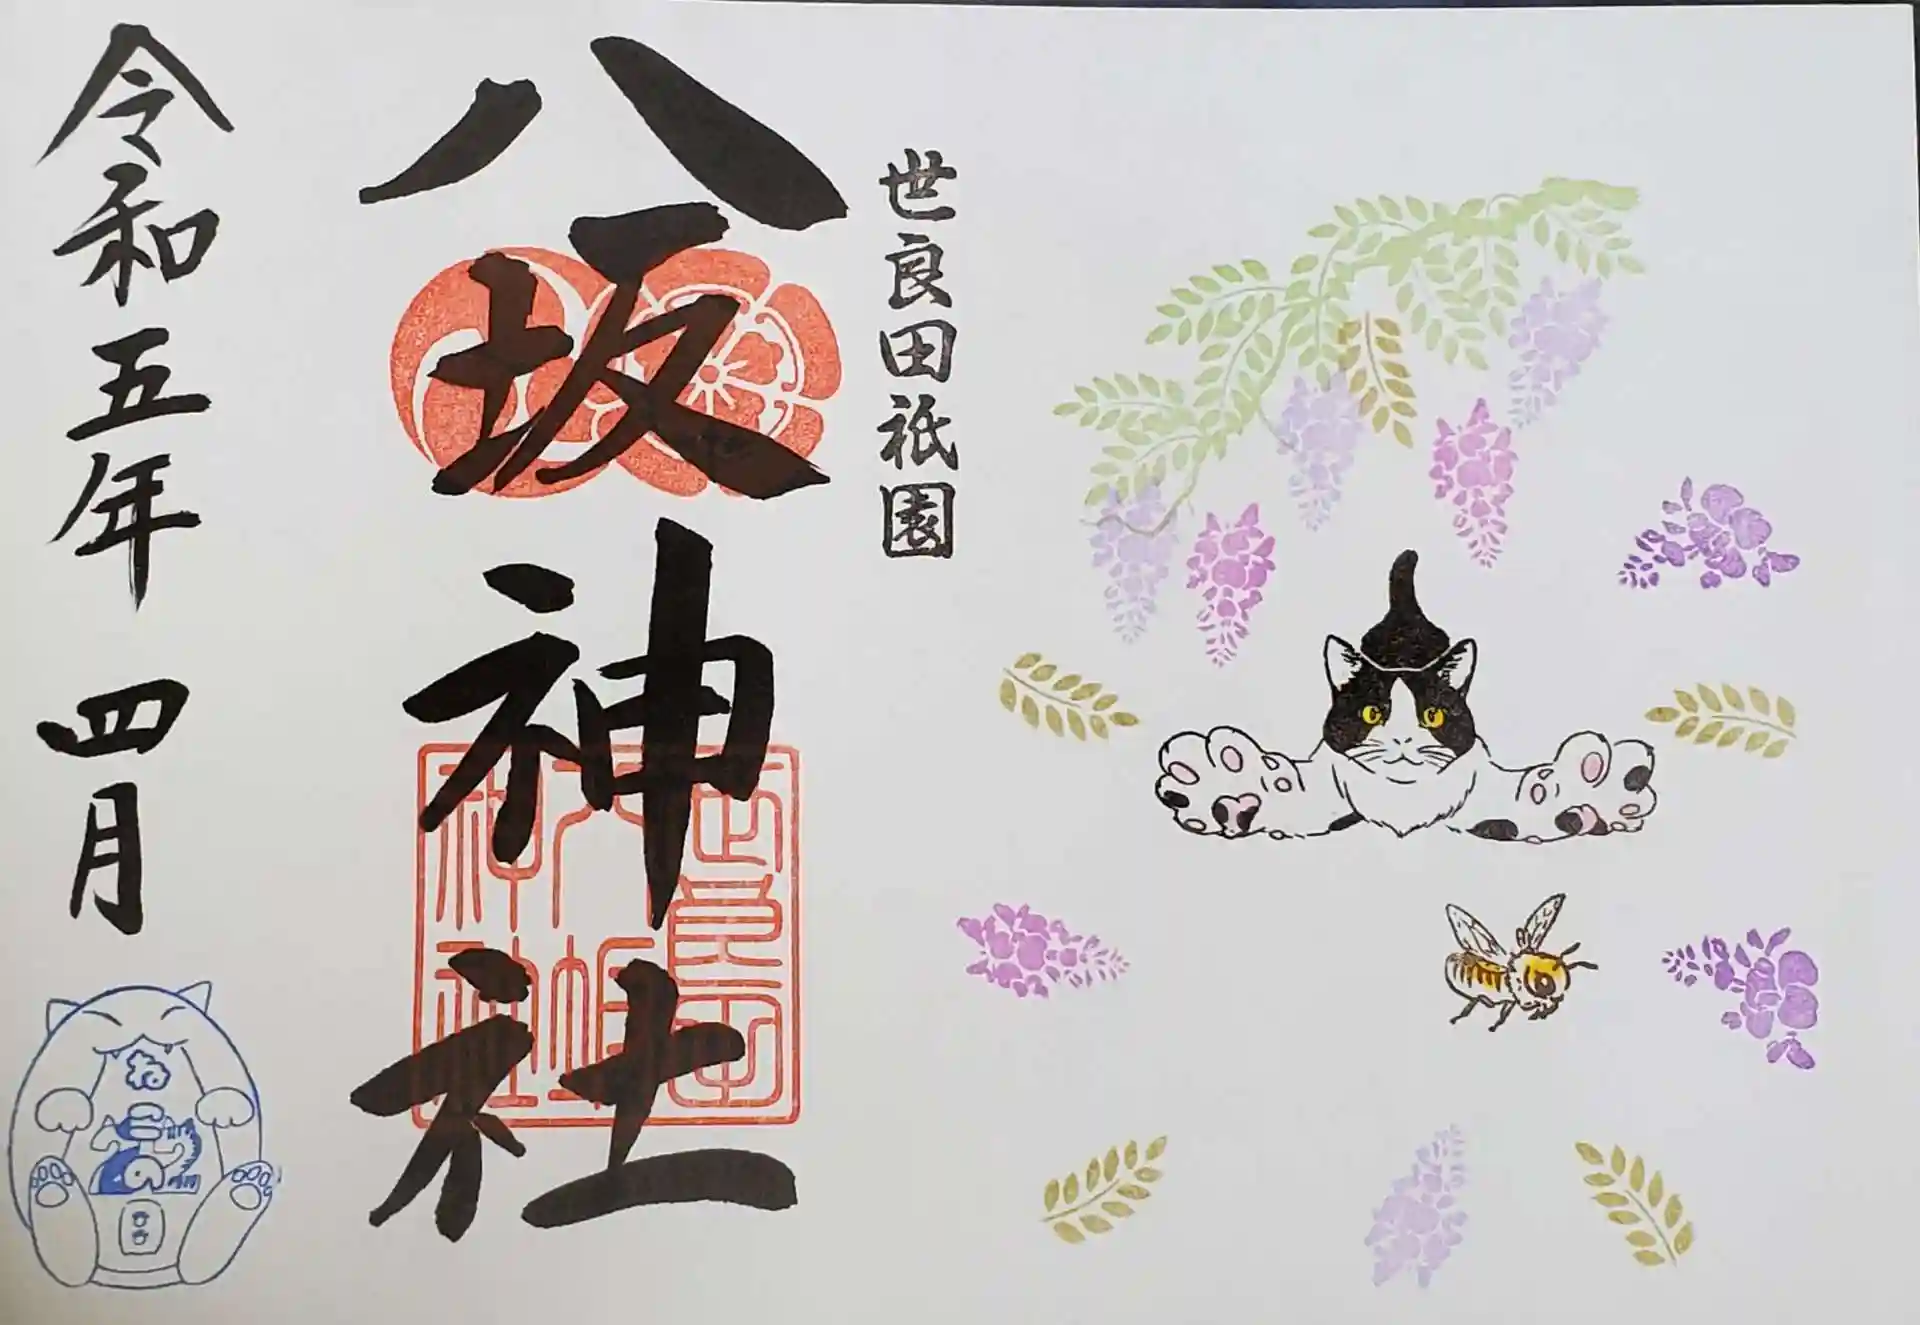 世良田祇園
八坂神社
令和五年 四月
世良田
八坂
神社